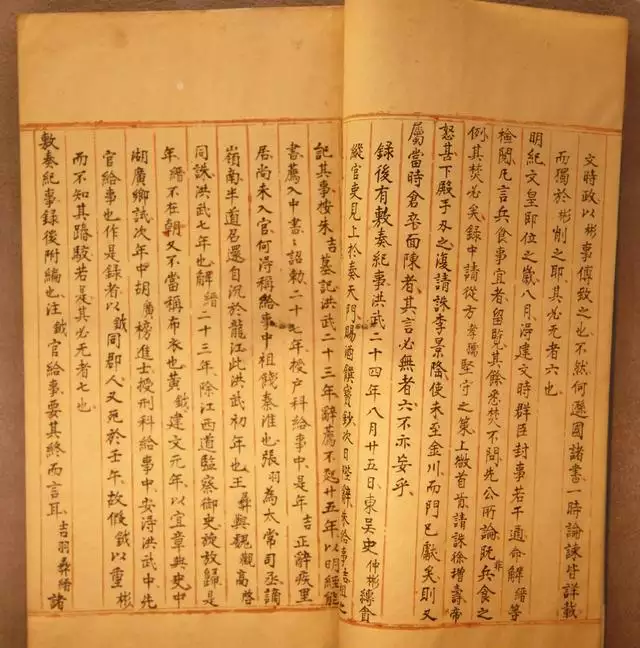 文時政以彬事傅致之也不然何遜國諸書一時論諫皆詳載
而獨於彬削之耶其必无者六也
明紀文皇即位之歲八月淂建文時群臣封事若干通命解縉等
檢閱凡言兵食事宜者留覽其餘悉焚不問先公所論既非兵食之
例其焚必矣錄中請從方孝孺堅守之策上嶶首肯請誅徐增壽帝
怒甚下殿手刃之復請誅李景隆使未至金川而門已獻矣則又
屬當時倉卒面陳者其言必無者六不亦妄乎
錄後有敷奏紀事洪武二十四年八月廿五日東吳史仲彬縳貪
縱官吏見上於奉天門賜酒饌寳鈔次日陛辭朱給事吉祖之
記其事按朱吉墓記洪武二十三年辭薦不起廿五年以明經能
書薦入中書二詔勅二十七年授户科給事中是年吉正辭疾里
居尚未入官何淂稱給事中祖餞秦淮也張羽為太常司丞謫
嶺南半道召還自沉於龍江此洪武初年也王彝與魏觀高啓
同誅洪武七年也解縉二十三年除江西道監察御史旋放歸是
年縉不在朝又不當稱布衣也黃鉞建文元年以宜章典史中
湖廣鄉試次年中胡廣榜進士授刑科給事中安淂洪武中先
官給事也作是錄者以鉞同郡人又死於壬年故假鉞以重彬
而不知其踳駁若是其必无者七也
敷奏紀事錄後附編也注鉞官給事要其終而言耳吉羽彝縉諸